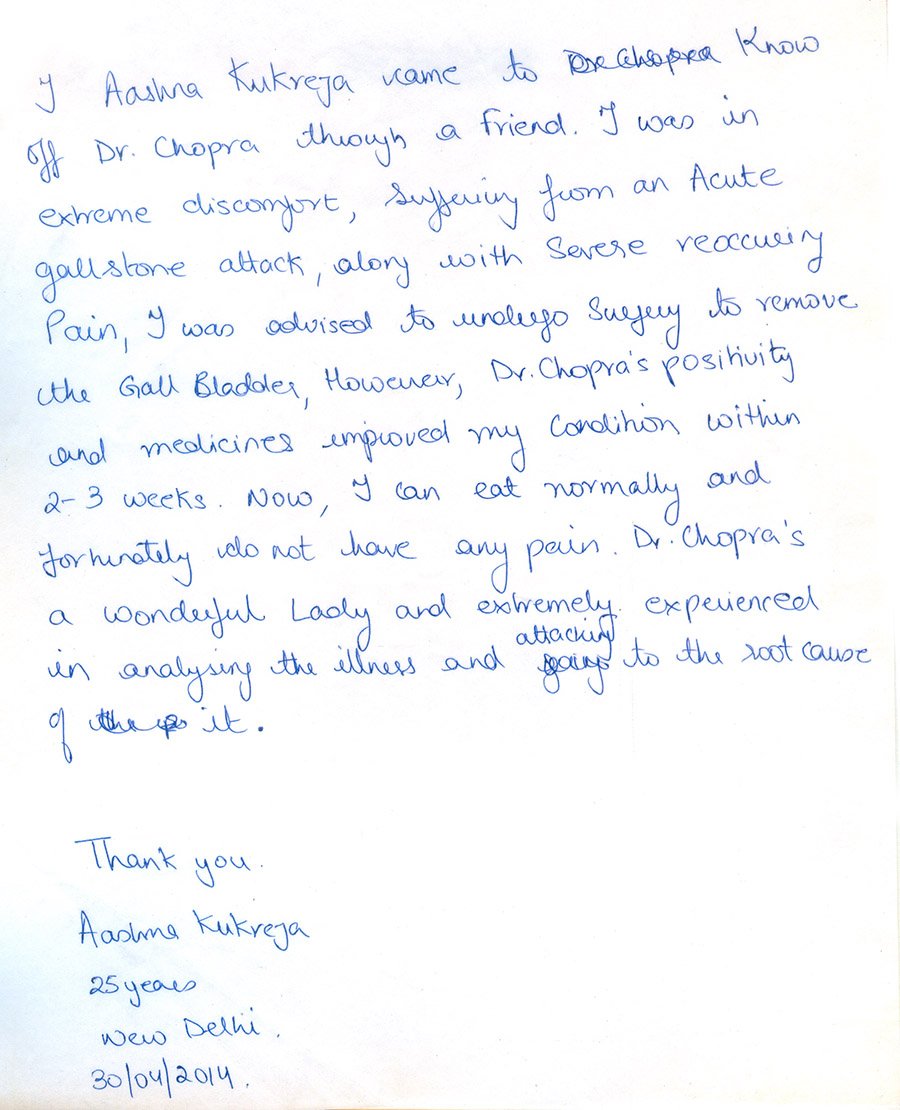 I Aashna Kukreja came to Dr Chopra Know
off Dr. Chopra through a friend. I was in
extreme discomfort, suffering from an Acute
gallstone attack, along with Severe reoccuring
Pain, I was advised to undergo Surgery to remove
the Gall Bladder, However, Dr. Chopra's positivity
and medicines improved my Condition within
2-3 weeks. Now, I can eat normally and
fortunately do not have any pain. Dr. Chopra's
a wonderful Lady and extremely experienced
in analysing the illness and going attacking to the root cause
of it.
Thank you.
Aashna Kukreja
25 years
New Delhi.
30/04/2014.